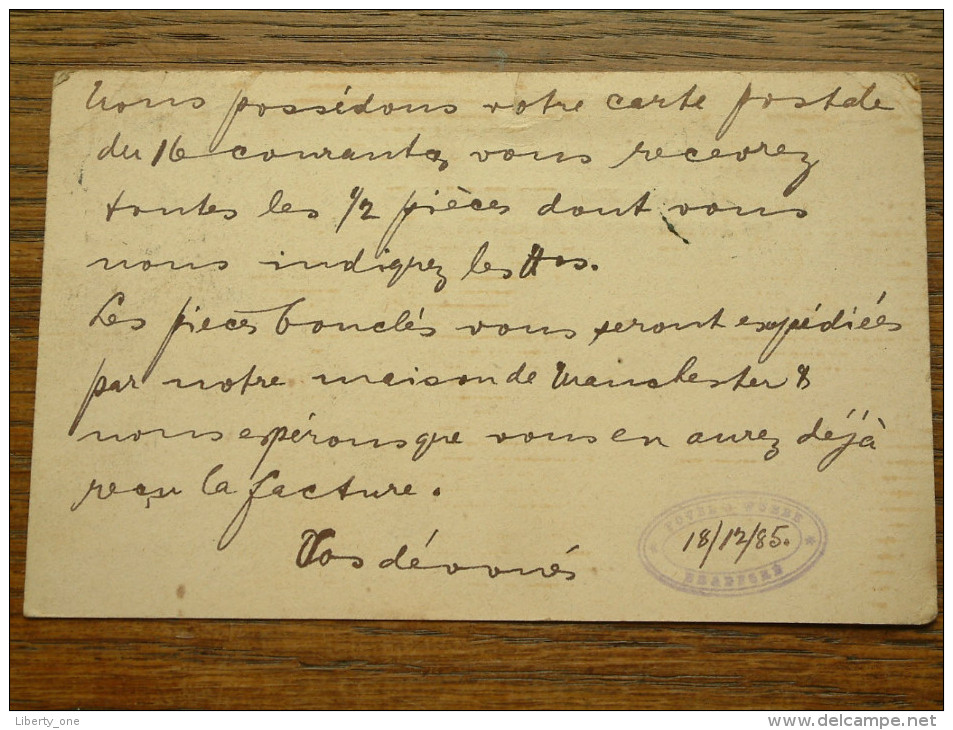 Nous possédons votre carte postale
du 16 courant & vous recevrez
toutes les 1/2 pièces dont vous
nous indiquez les Nos.
Les pièces bouclés vous seront expédiées
par notre maison de Manchester &
nous espérons que vous en aurez déjà
reçu la facture.
Vos dévoués
18/12/85.
BRADFORD
Liberty_one
http://www.delcampe.net